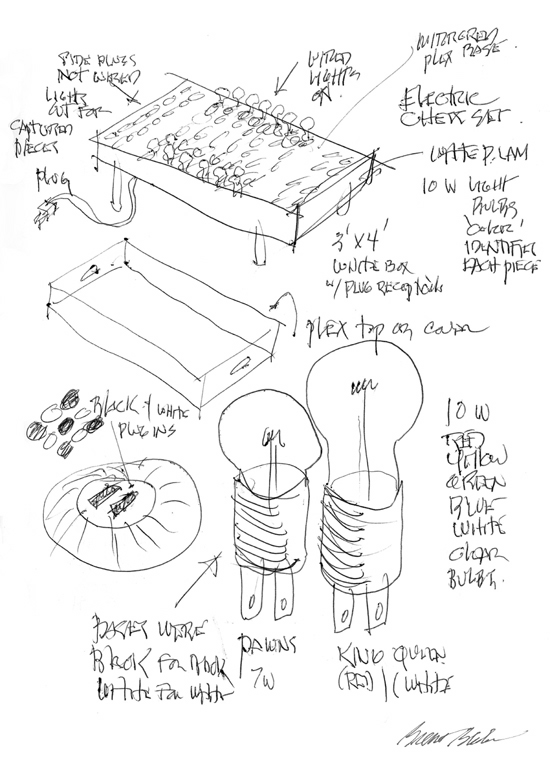 SIDE PLUGS
NOT WIRED
LIGHTS
OUT FOR
CAPTURED
PIECES
PLUG
WIRED
LIGHTS
ON.
MITERERED
PLEX BASE.
ELECTRIC
CHESS SET.
WHITE P. LAM
10 W LIGHT
BULBS
'COLOR'
IDENTIFIES
EACH PIECE
3' X 4'
WHITE BOX
W/ PLUG RECEPTACLES
PLEX top or cover
BLACK & WHITE
PLUG INS
10 W
RED
YELLOW
GREEN
BLUE
WHITE
CLEAR
BULBS.
BASES WERE
BLACK FOR BLACK
WHITE FOR WHITE
PAWNS
7W
KING QUEEN
(RED) (WHITE